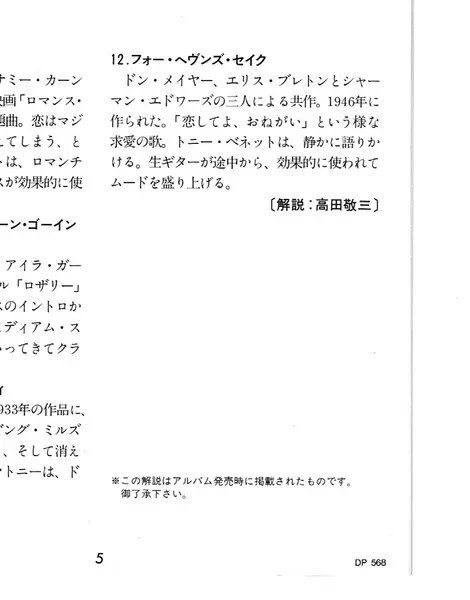 ナミー・カーン
映画「ロマンス・
題曲。恋はマジ
えてしまう、と
トは、ロマンチ
スが効果的に使
ーン・ゴーイン
アイラ・ガー
ル「ロザリー」
スのイントロか
ミディアム・ス
いってきてクラ
ィ
1933年の作品に、
ヴング・ミルズ
、そして消え
トニーは、ド
12.フォー・ヘヴンズ・セイク
ドン・メイヤー、エリス・ブレトンとシャー
マン・エドワーズの三人による共作。1946年に
作られた。「恋してよ、おねがい」という様な
求愛の歌。トニー・ベネットは、静かに語りか
ける。生ギターが途中から、効果的に使われて
ムードを盛り上げる。
〔解説：高田敬三〕
※この解説はアルバム発売時に掲載されたものです。
御了承下さい。
5
DP 568